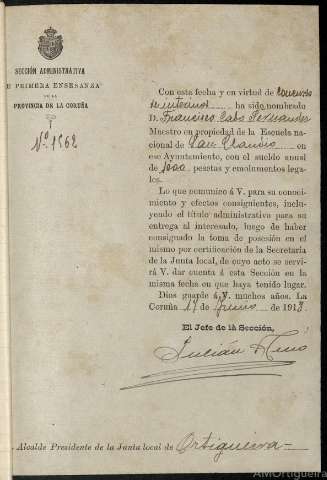 SECCIÓN ADMINISTRATIVA
DE PRIMERA ENSEÑANZA
DE LA
PROVINCIA DE LA CORUÑA
Nº. 1562
Con esta fecha y en virtud de Concurso
de interinos ha sido nombrado
D. Francisco Cabo Fernández
Maestro en propiedad de la Escuela
nacional de San Claudio en
ese Ayuntamiento, con el sueldo anual
de 1000 pesetas y emolumentos lega-
les.
Lo que comunico á V. para su conoci-
miento y efectos consignientes, inclu-
yendo el título administrativo para su
entrega al interesado, luego de haber
consignado la toma de posesión en el
mismo por certificación de la Secretaría
de la Junta local, de cuyo acto se servi-
rá V. dar cuenta á esta Sección en la
misma fecha en que haya tenido lugar.
Dios guarde á V. muchos años. La
Coruña 17 de Junio de 1918.
El Jefe de la Sección,
Julián
Alcalde Presidente de la Junta local de Ortigueira
AMOrtigueira